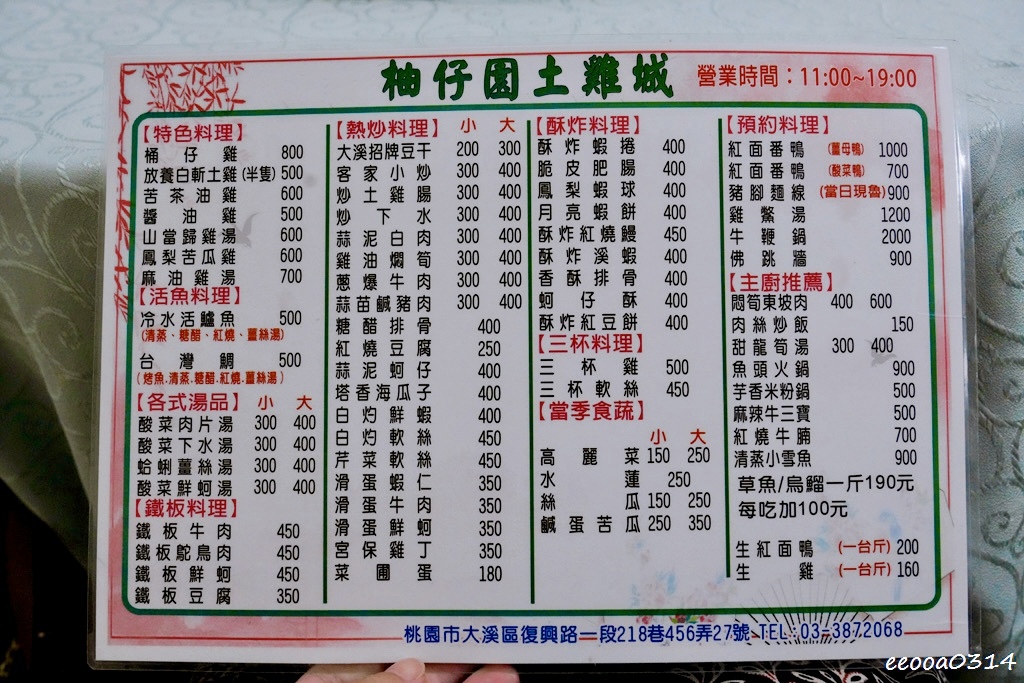 柚仔園土雞城 營業時間：11:00~19:00
【特色料理】
桶仔雞 800
放養白斬土雞(半隻) 500
苦茶油雞 600
醬油雞 500
山當歸雞湯 600
鳳梨苦瓜雞 600
麻油雞湯 700
【活魚料理】
冷水活鱸魚 500
(清蒸、糖醋、紅燒、薑絲湯)
台灣鯛 500
(烤魚.清蒸.糖醋.紅燒.薑絲湯)
【各式湯品】 小 大
酸菜肉片湯 300 400
酸菜下水湯 300 400
蛤蜊薑絲湯 300 400
酸菜鮮蚵湯 300 400
【鐵板料理】
鐵板牛肉 450
鐵板鴕鳥肉 450
鐵板鮮蚵 450
鐵板豆腐 350
【熱炒料理】 小 大
大溪招牌豆干 200 300
客家小炒 300 400
炒土雞腸 300 400
炒下水 300 400
蒜泥白肉 300 400
雞油燜筍 300 400
蔥爆牛肉 300 400
蒜苗鹹豬肉 300 400
糖醋排骨 400
紅燒豆腐 250
蒜泥蚵仔 400
塔香海瓜子 400
白灼鮮蝦 400
白灼軟絲 450
芹菜軟絲 450
滑蛋蝦仁 350
滑蛋牛肉 350
滑蛋鮮蚵 350
宮保雞丁 350
菜圃蛋 180
【酥炸料理】
酥炸雞捲 400
脆皮肥腸 400
鳳梨蝦球 400
月亮蝦餅 400
酥炸紅燒鰻 450
酥炸溪蝦 400
香酥排骨 400
蚵仔酥 400
酥炸紅豆餅 400
【三杯料理】
三杯雞 500
三杯軟絲 450
【當季食蔬】
小 大
高麗菜 150 250
水蓮 250
絲瓜 150 250
鹹蛋苦瓜 250 350
【預約料理】
紅面番鴨 (薑母鴨) 1000
紅面番鴨 (酸菜鴨) 700
豬腳麵線 (當日現魯) 900
雞鱉湯 1200
牛鞭鍋 2000
佛跳牆 900
【主廚推薦】
悶筍東坡肉 400 600
肉絲炒飯 150
甜龍筍湯 300 400
魚頭火鍋 900
芋香米粉鍋 500
麻辣牛三寶 500
紅燒牛腩 700
清蒸小雪魚 900
草魚/烏鰡一斤190元
每吃加100元
生紅面鴨 (一台斤) 200
生雞 (一台斤) 160
桃園市大溪區復興路一段218巷456弄27號 TEL:03-3872068
eeooa0314